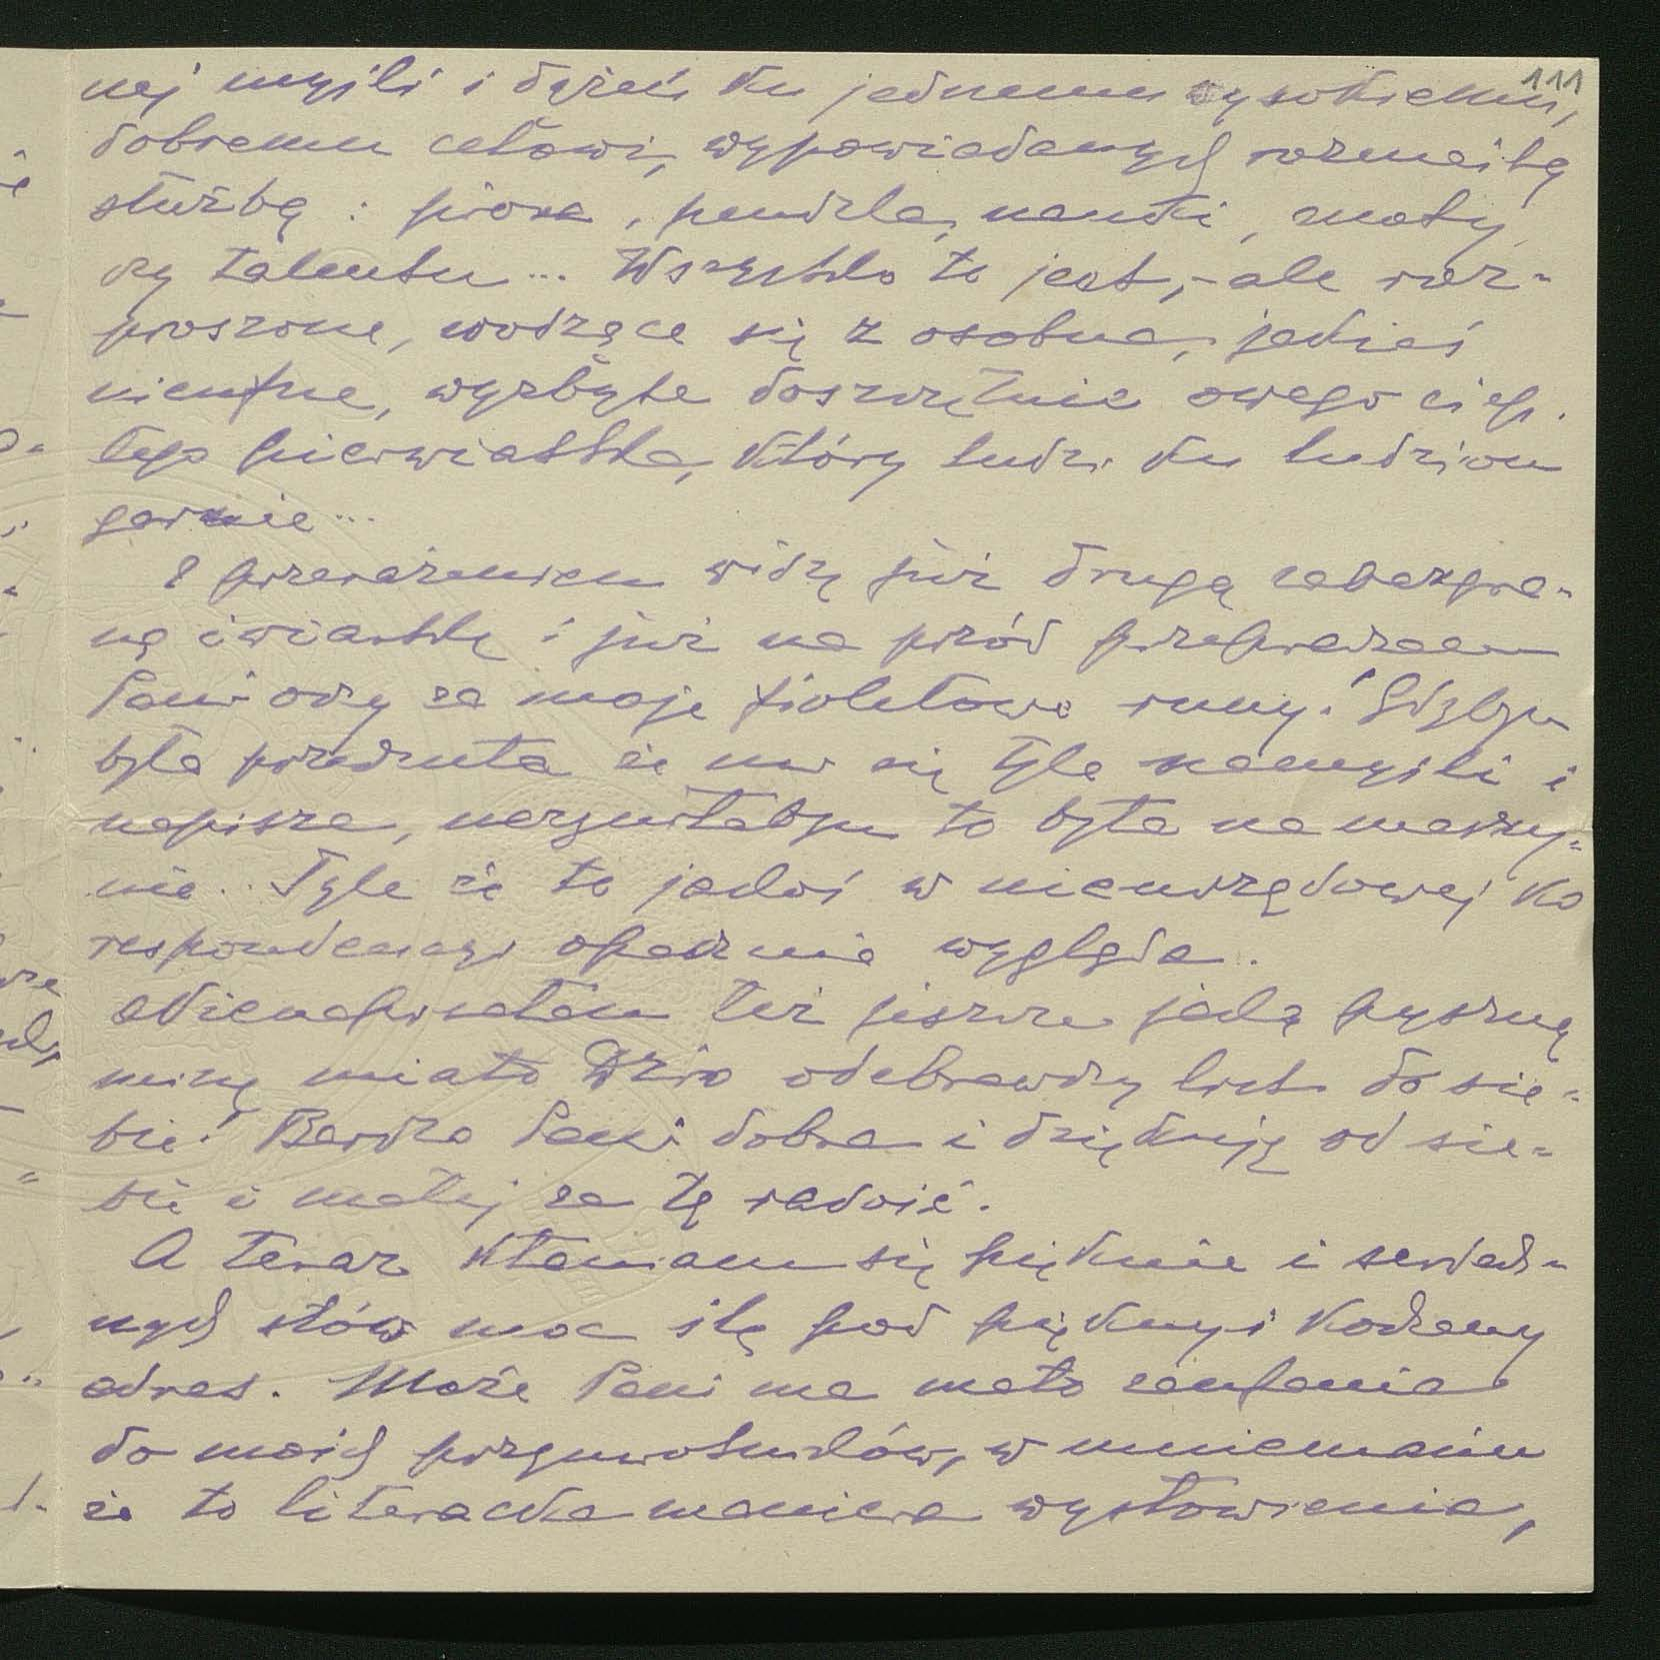 111
nej myśli i dążeń ku jednemu wysokiemu,
dobremu celowi, wypowiadanych rozmaitą
służbą: pióra, pendzla, nauki, cnoty
czy talentu... Wszystko to jest, - ale roz-
proszone, wodzące się z osobna, jakieś
nieufne, wyzbyte doszczętnie owego ciep-
łego pierwiastka, który ludzi ku ludziom
garnie...
Z przerażeniem widzę już drugą zabazgra-
ną ćwiartkę i już na przód przepraszam
Pani oczy za moje fioletowe runy! Gdybym
była przeczuła że mi się tyle namyśli i
napisze, narzuciłabym to była na maszy-
nie... Tyle że to jakoś w nieurzędowej ko
respondencyi opacznie wygląda.
Nienapisałam też jeszcze jaką pyszną
minę miało Dzio odebrawszy list do sie-
bie! Bardzo Pani dobra i dziękuję od sie-
bie i małej za tę radość.
A teraz kłaniam się pięknie i serdecz-
nych słów moc ślę pod piękny i kochany
adres. Może Pani ma mało zaufania
do moich przymiotników, w mniemaniu
że to literacka maniera wysłowienia,